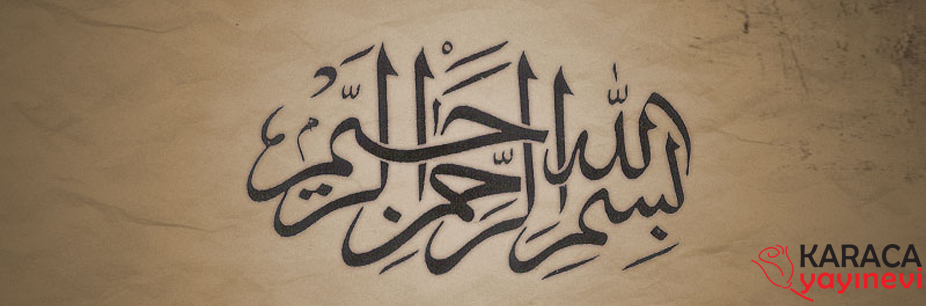 بسم الله الرحمن الرحيم
KARACA
yayınevi